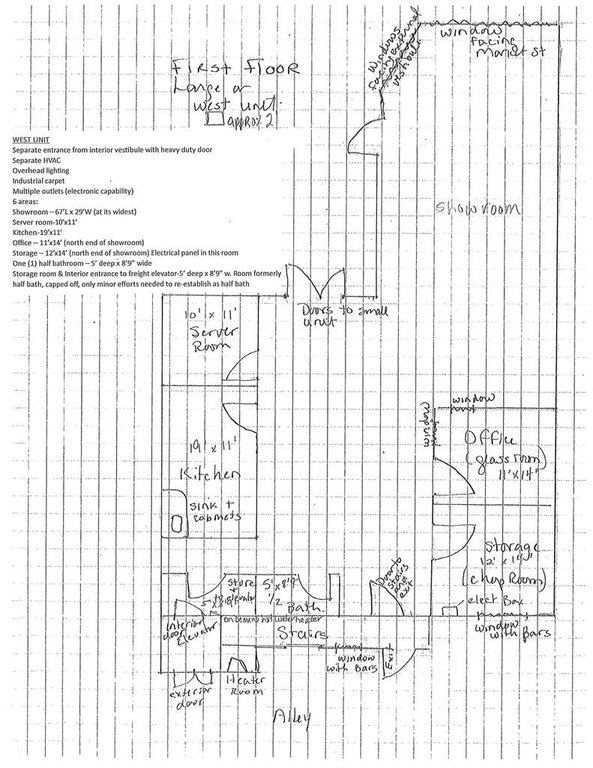 First Floor
Large or
West unit.
approx 2'
windows
facing external
vestibule
window
facing
Market St
WEST UNIT
Separate entrance from interior vestibule with heavy duty door
Separate HVAC
Overhead lighting
Industrial carpet
Multiple outlets (electronic capability)
6 areas:
Showroom – 67'L x 29'W (at its widest)
Server room-10'x11'
Kitchen-19'x11'
Office – 11'x14' (north end of showroom)
Storage – 12'x14' (north end of showroom) Electrical panel in this room
One (1) half bathroom – 5' deep x 8'9" wide
Storage room & Interior entrance to freight elevator-5' deep x 8'9" w. Room formerly
half bath, capped off, only minor efforts needed to re-establish as half bath
showroom
Doors to small
unit
10' x 11'
Server
Room
19' x 11'
Kitchen
sink +
cabinets
window
window
Office
(glass room)
11'x14'
Storage
12' x 14'
(chop Room)
elect Box
window
with Bars
Door to
stairs
and
exit
Store
5' x 8'9"
1/2
Bath.
Interior
door
Elevator
on Demand hot water heater
Stairs
window
with Bars
Exit
exterior
door
Heater
Room
Alley